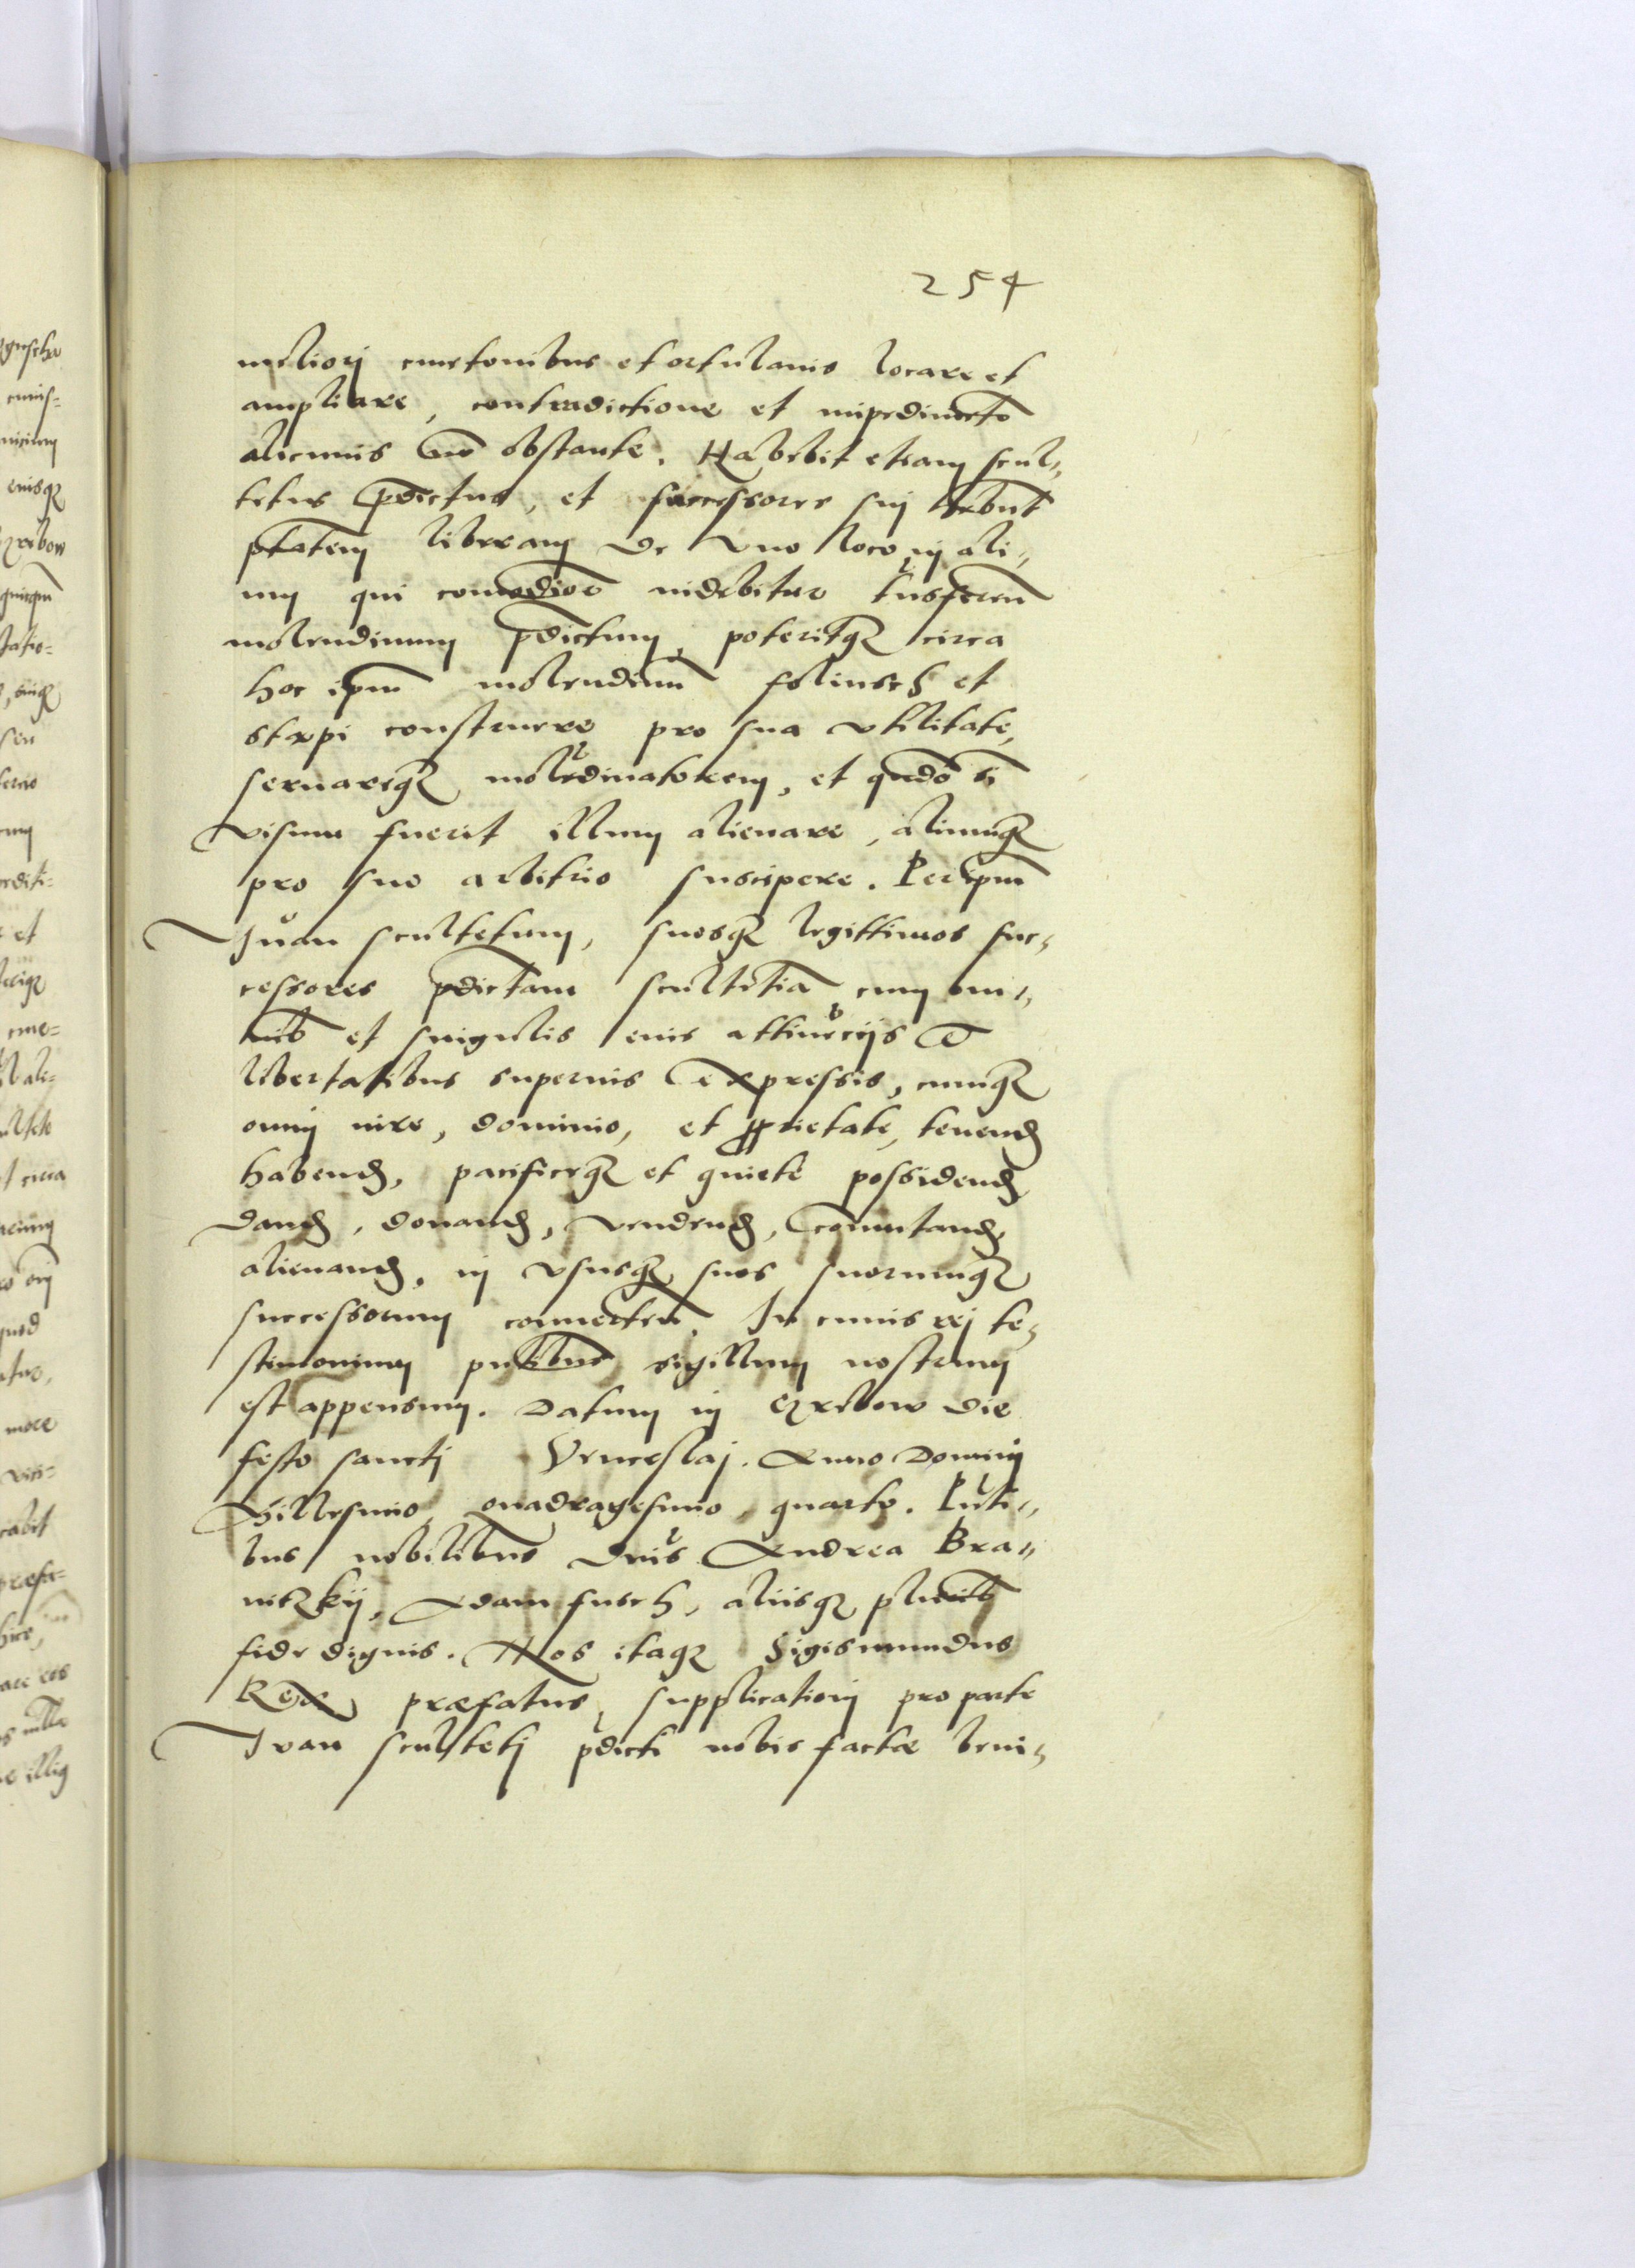 254
meliorj cmetonibus et ortulanis locare et
ampliare, contradictione et impedimēto
alicuius nō obstante. Habebit etiam scul„
tetus p̄dictus, et successores suj habebūt
ptatem liberam de vno loco in ali„
um qui comodior videbitur trāsferend
molendinum p̄dictum, poteritq₃ circa
hoc ipm̄ molendinū foliusch et
stepi construere pro sua vtilitate,
seruareq₃ molendinatorem, et quādo ei
visum fuerit illum alienare, aliumq₃
pro suo arbitrio suscipere. Per ipm̄
Iuan scultetum, suosq₃ legittimos suc„
cessores p̄dictam scultetiā cum om„
nib et singulis eius attinēcijs et
libertatibus superius expressis, cumq₃
omnj iure, dominio, et ꝓprietate, tenend
habend, pacificeq₃ et quiete possidend
dand, donand, vendend, comutand,
alienand, in vsusq₃ suos suorumq₃
successorum conuertend. In cuius rej te„
stimonium pntibus sigillum nostrum
est appensum. Datum in Czebow die
festo sanctj Venceslaj. Anno Dominj
Millesimo, quadragesimo, quarto. Pnti„
bus nobilibus Dnis Andrea Bra„
nitzkij, Adam fusch, aliisq₃ plurib
fide dignis. Nos itaq₃ Sigismundus
Rex præfatus, supplicationj pro parte
Ivan scultetj p̄dicti nobis factæ beni„